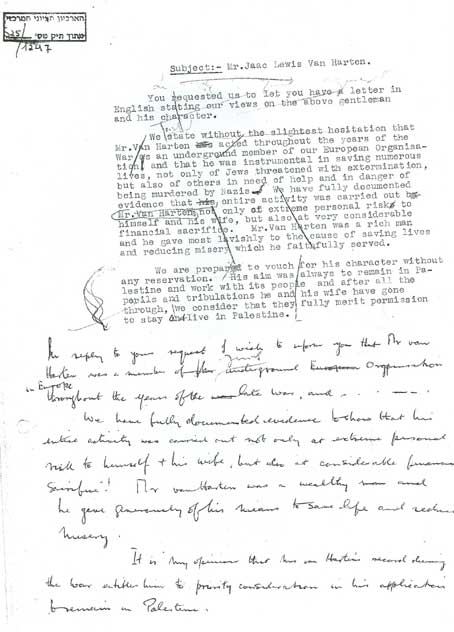 הארכיון הציוני המרכזי
מתוך תיק מס'
S25/
1247
Subject:- Mr.Jaac Lewis Van Harten.
You requested us to let you have a letter in
English stating our views on the above gentleman
and his character.
We state without the slightest hesitation that
Mr.Van Harten acted throughout the years of the
War as an underground member of our European Organisa-
tion and that he was instrumental in saving numerous
lives, not only of Jews threatened with extermination,
but also of others in need of help and in danger of
being murdered by Nazis. We have fully documented
evidence that his entire activity was carried out
Mr.Van Harten not only at extreme personal risk to
himself and his wife, but also at very considerable
financial sacrifice. Mr.Van Harten was a rich man
and he gave most lavishly to the cause of saving lives
and reducing misery which he faithfully served.
We are prepared to vouch for his character without
any reservation. His aim was always to remain in Pa-
lestine and work with its people and after all the
perils and tribulations he and his wife have gone
through, we consider that they fully merit permission
to stay and live in Palestine.
In reply to your request I wish to inform you that Mr van
Harten was a member of Jewish underground European Organisation
in Europe
throughout the years of the late War, and
We have fully documented evidence to show that his
entire activity was carried out not only at extreme personal
risk to himself + his wife, but also at considerable financial
Sacrifice! Mr van Harten was a wealthy man and
he gave generously of his means to save life and reduce
misery.
It is my opinion that Mr van Harten's record during
the war entitles him to priority consideration in his application
to remain in Palestine.